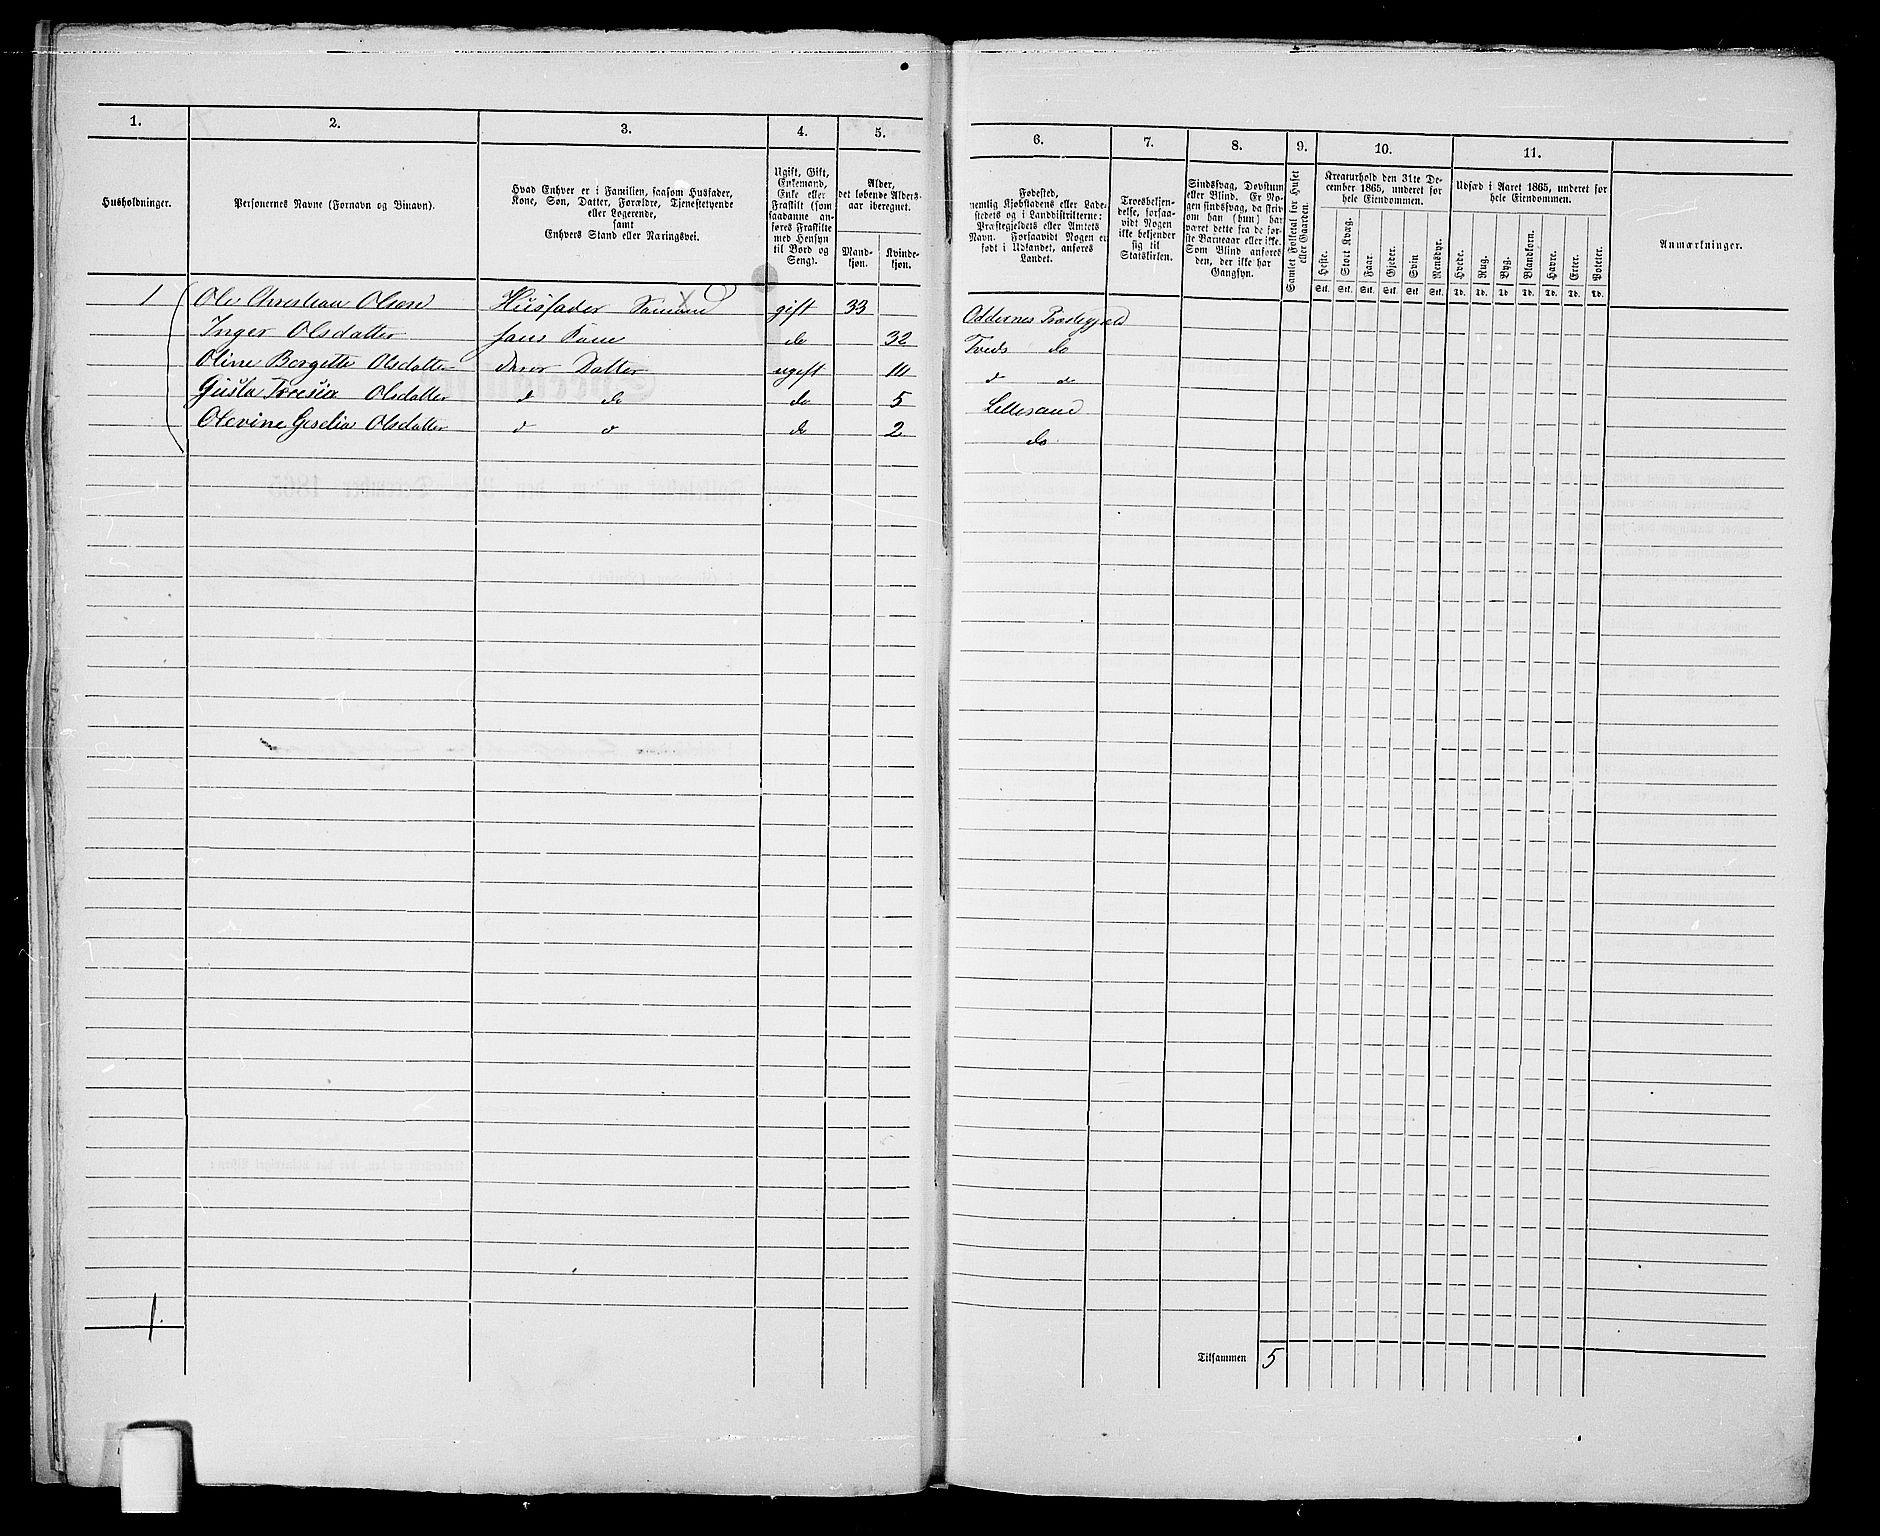 1. 2. 3. 4. 5. 6. 7. 8. 9. 10. 11.
Husholdninger.
Personernes Navne (Fornavn og Binavn).
Hvad Enhver er i Familien, saasom Husfader,
Kone, Søn, Datter, Forældre, Tjenestetyende
eller Logerende,
samt
Enhvers Stand eller Næringsvei.
Ugift, Gift,
Enkemand,
Enke eller
Fraskilt (som
saadanne an-
føres Fraskilte
med Hensyn
til Bord og
Seng).
Alder,
det løbende Alders-
aar iberegnet.
Mand-
kjøn.
Kvinde-
kjøn.
Fødested,
nemlig Kjøbstadens eller Lade-
stedets og i Landdistrikterne:
Præstegjeldets eller Amtets
Navn. Forsaavidt Nogen er
født i Udlandet, anføres
Landet.
Troesbekjen-
delse, forsaa-
vidt Nogen
ikke bekjender
sig til
Statskirken.
Sindssvag, Døvstum
eller Blind. Er No-
gen sindssvag, da skriv
om han (hun) har
været dette fra de før-
ste Barneaar eller ikke.
Som Blind anføres
den, der ikke har
Gangsyn.
Samlet Folketal for Huset
eller Gaarden.
Kreaturhold den 31te De-
cember 1865, underet for
hele Eiendommen.
Heste. Stort Kvæg. Faar. Gjeder. Svin. Rensdyr.
Stk. Stk. Stk. Stk. Stk. Stk.
Udsæd i Aaret 1865, underet for
hele Eiendommen.
Hvede. Rug. Byg. Blandkorn. Havre. Erter. Poteter.
Td. Td. Td. Td. Td. Td. Td.
Anmærkninger.
1 Ole Christian Olsen Husfader Sømand gift 33 Oddernes Præstegjeld
Inger Olsdatter hans Kone do 32 Tveds do
Oline Borgitte Olsdatter deres Datter ugift 10 d d
Gusta Teresia Olsdatter d do do 5 Lillesand
Olevine Geselia Olsdatter d d do 2 do
1.
Tilsammen 5